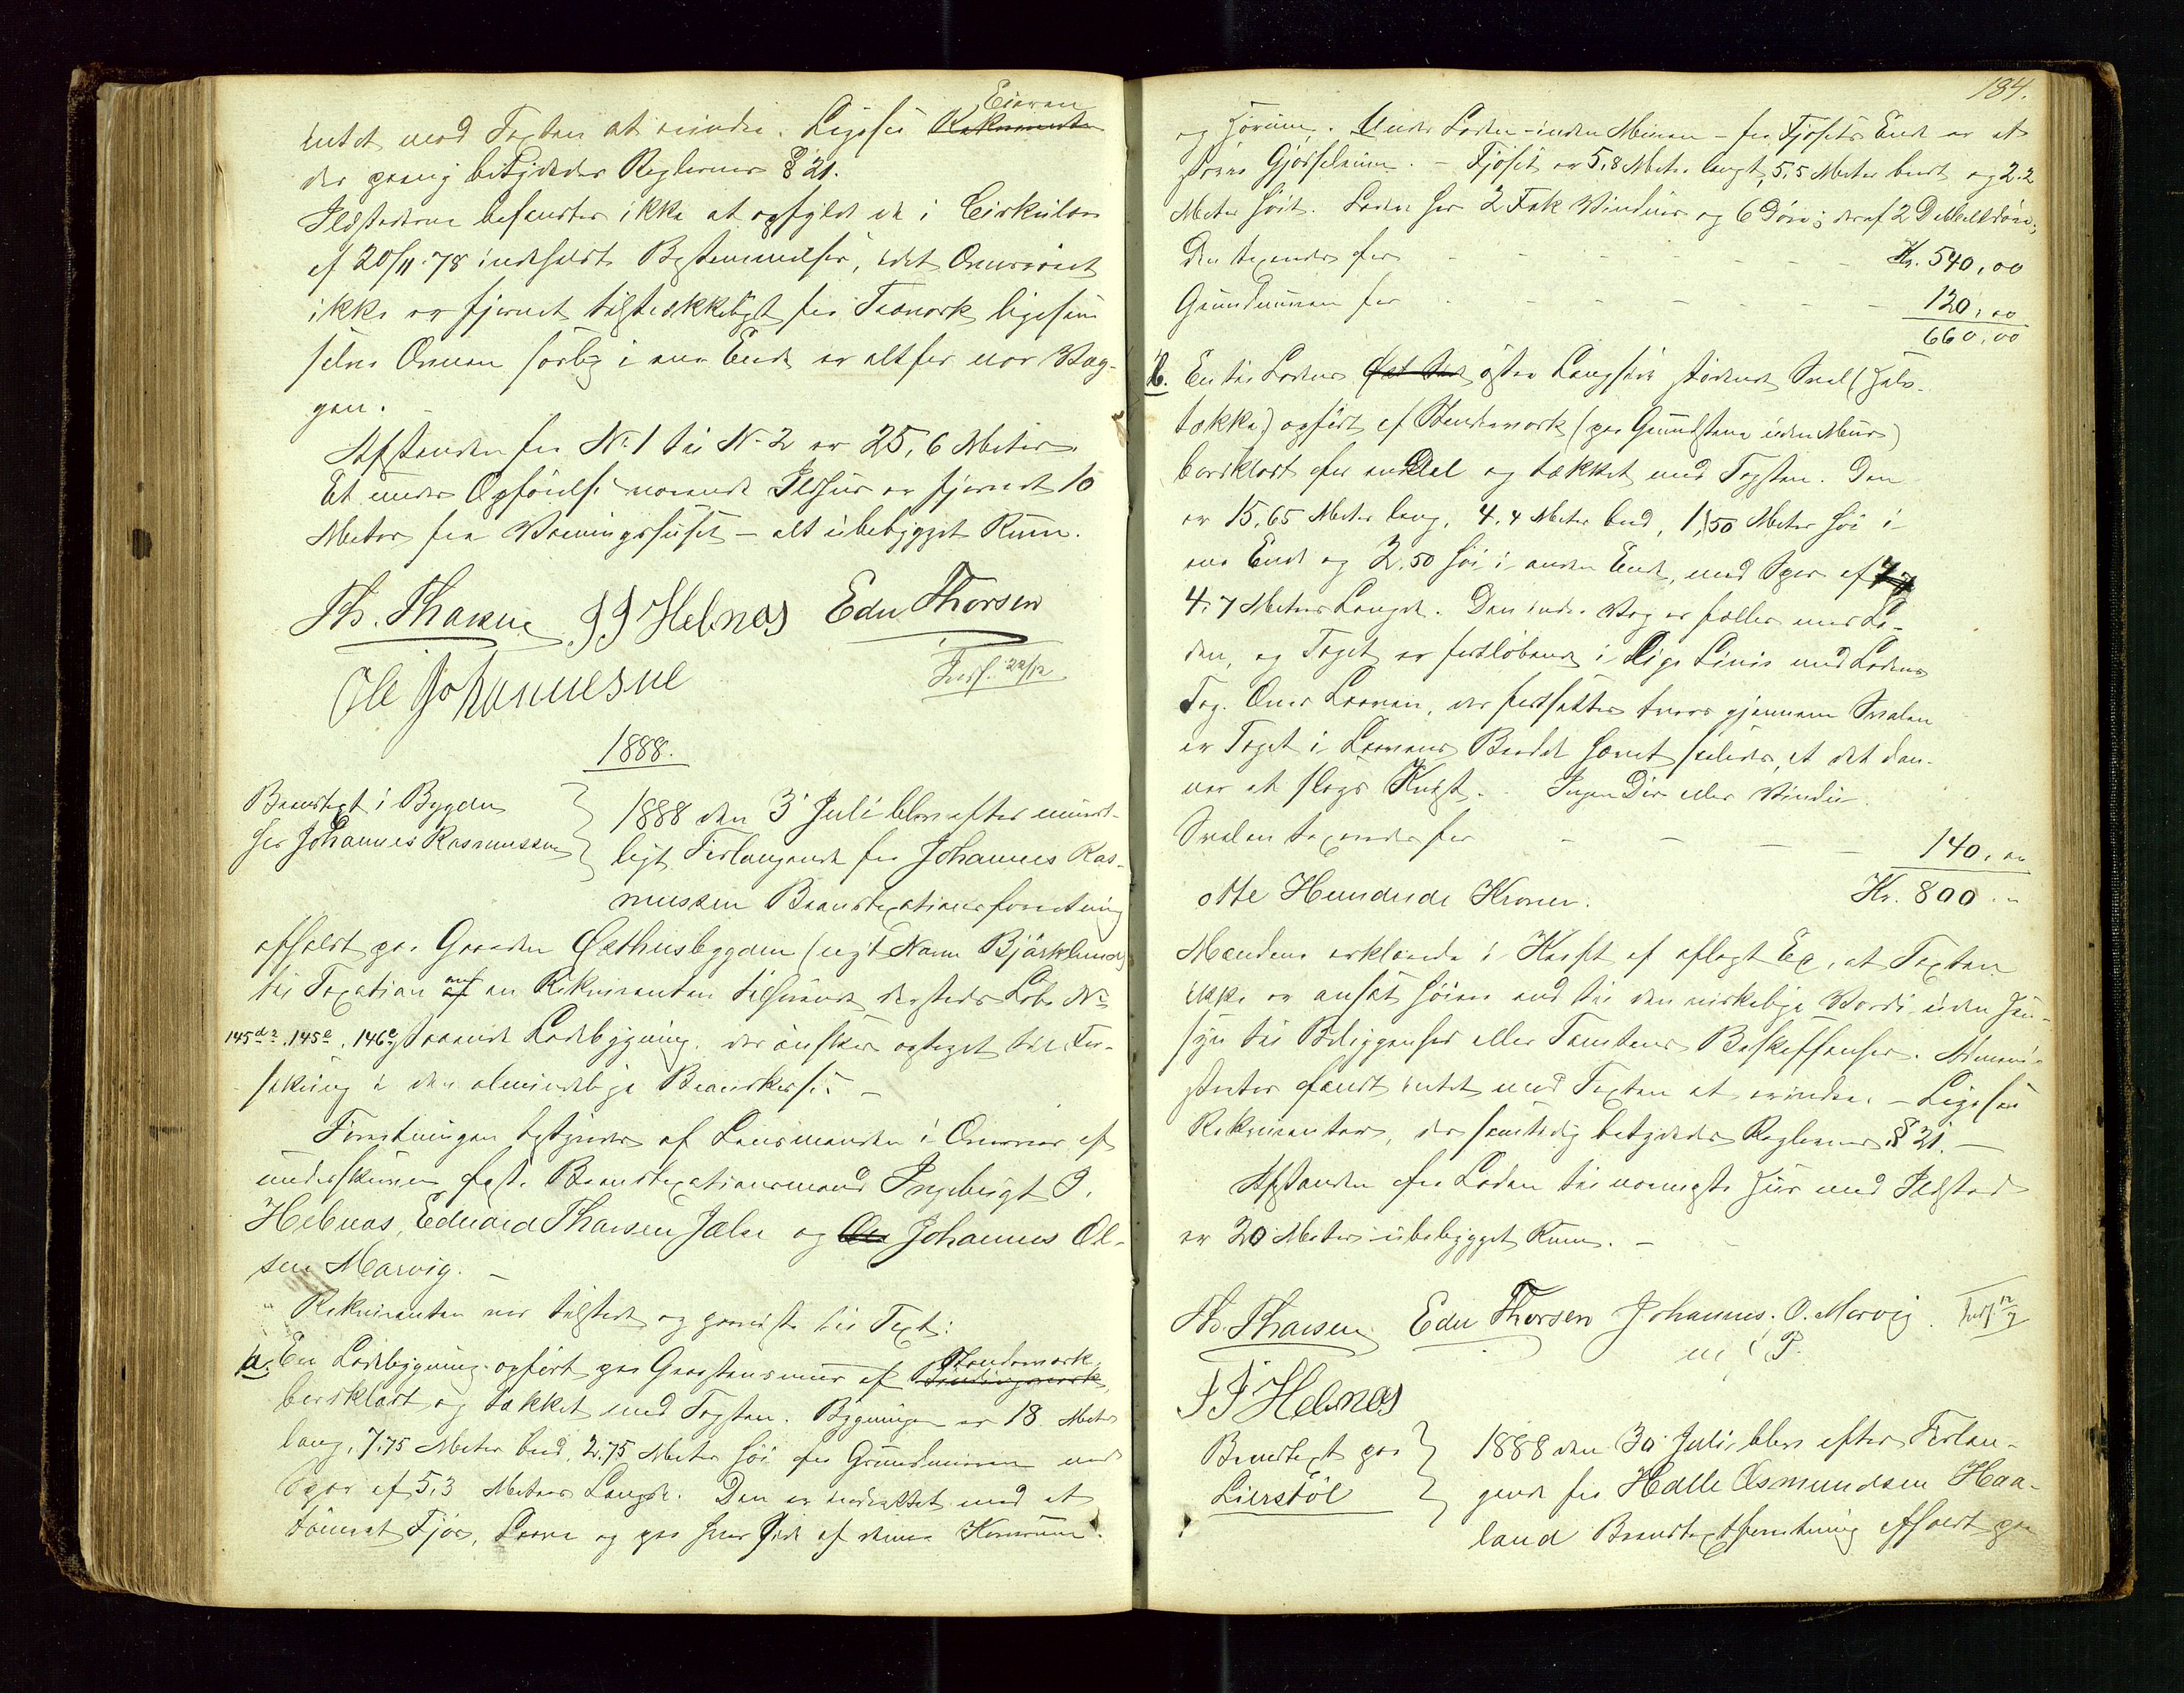 Eieren
intet mod Taxten at erindre. Ligesaa Rekvirenten
der paany betydedes Reglernes § 21.
Ildstederne befandtes ikke at opfylde de i Cirkulære
af 20/11-78 indeholdte Bestemmelser, idet Ovnsröret
ikke er fjernet tilstrækkeligt fra Træværk ligesom
selve Ovnen særlig i ene Ende er altfor nær Væg-
gen.
Afstanden fra No 1 til No 2 er 25,6 Meter.
Et under Opförelse værende Ildhus er fjernet 10
Meter fra Vaaningshuset – alt ubebygget Rum.
Th. Thorsen I J Helnæs Edu Thorsen
Ole Johannesne
Indf. 22/12
1888.
Brandtaxt i Bygden
hos Johannes Rasmussen
1888 den 3 Juli blev efter mundt-
ligt Forlangende fra Johannes Ras-
mussen Brandtaxationsforretning
afholdt paa Gaarden Østhusbygden (nyt Navn Bjørklund)
til Taxation over en Rekvirenten tilhörende dersteds Löbe No
145d2, 145e, 146c staaende Ladebygning, der önskes optaget til For-
sikring i den almindelige Brandkasse. –
Forretningen bestyredes af Lensmanden i Overvær af
underskrevne faste Brandtaxationsmænd Ingebrigt J.
Helnæs, Eduard Thorsen Jelse og Ole Johannes Ol-
sen Marvig. –
Rekvirenten var tilstede og paaviste til Taxt:
a. En Ladebygning opfört paa Graastensmur af Bindingsværk Stenderværk,
bordklædt og tækket med Tagsten. Bygningen er 18 Meter
lang, 7,75 Meter bred, 2,75 Meter höi fra Grundmuren med
Sper af 5,3 Meters Længde. Den er indrettet med et
tömret Fjös, Laave og paa hver Side af denne Kornrum
184.
og Hörum. Under Laden – inden Muren – fra Fjösets Ende er et
större Gjödselrum. – Fjöset er 5,8 Meter langt, 5,5 Meter bredt og 2.2
Meter höit. Laden har 2 Fak Vinduer og 6 Döre; deraf 2 Dobbeltdöre;
Den taxeredes for - - - - - Kr. 540,00
Grundmuren for - - - - - 120,00
660,00
b. En til Ladens østre Langside stödende Sval (Halv-
tække) opfört af Stenderværk (paa Grundstene uden Mur)
bordklædt for en Del og tækket med Tagsten. Den
er 15,65 Meter lang, 4,4 Meter bred, 1,50 Meter höi i
ene Ende og 2,50 höi i anden Ende, med Sper af
4,7 Meters Længde. Den indre Væg er fælles med La-
den, og Taget er fortlöbende i lige Linie med Ladens
Tag. Over Laaven, der fortsætter tvers gjennem Svalen
er Taget i Laavens Bredde hævet saaledes, at det dan-
ner et slags Kvist. Ingen Dör eller Vindu.
Svalen taxeredes for - - - - 140,00
otte Hundrede Kroner. Kr. 800.–
Mændene erklærede i Kraft af aflagt Ed, at Taxten
ikke er ansat höiere end til den virkelige Værdi uden Hen-
syn til Beliggenhed eller Tomtens Beskaffenhed. Admini-
strator fandt intet mod Taxten at erindre. – Ligesaa
Rekvirenten, der samtidig betydedes Reglernes § 21. –
Afstanden fra Laden til nærmeste Hus med Ildsted
er 20 Meter ubebygget Rum. –
Th. Thorsen Edu Thorsen Johannes. O. Marvig. Indf. 12/7
m. P.
I J Helnæs
Brandtaxt paa
Lierstöl
1888 den 30 Juli blev efter Forlan-
gende fra Halle Osmundsen Haa-
land Brandtaxtforretning afholdt paa